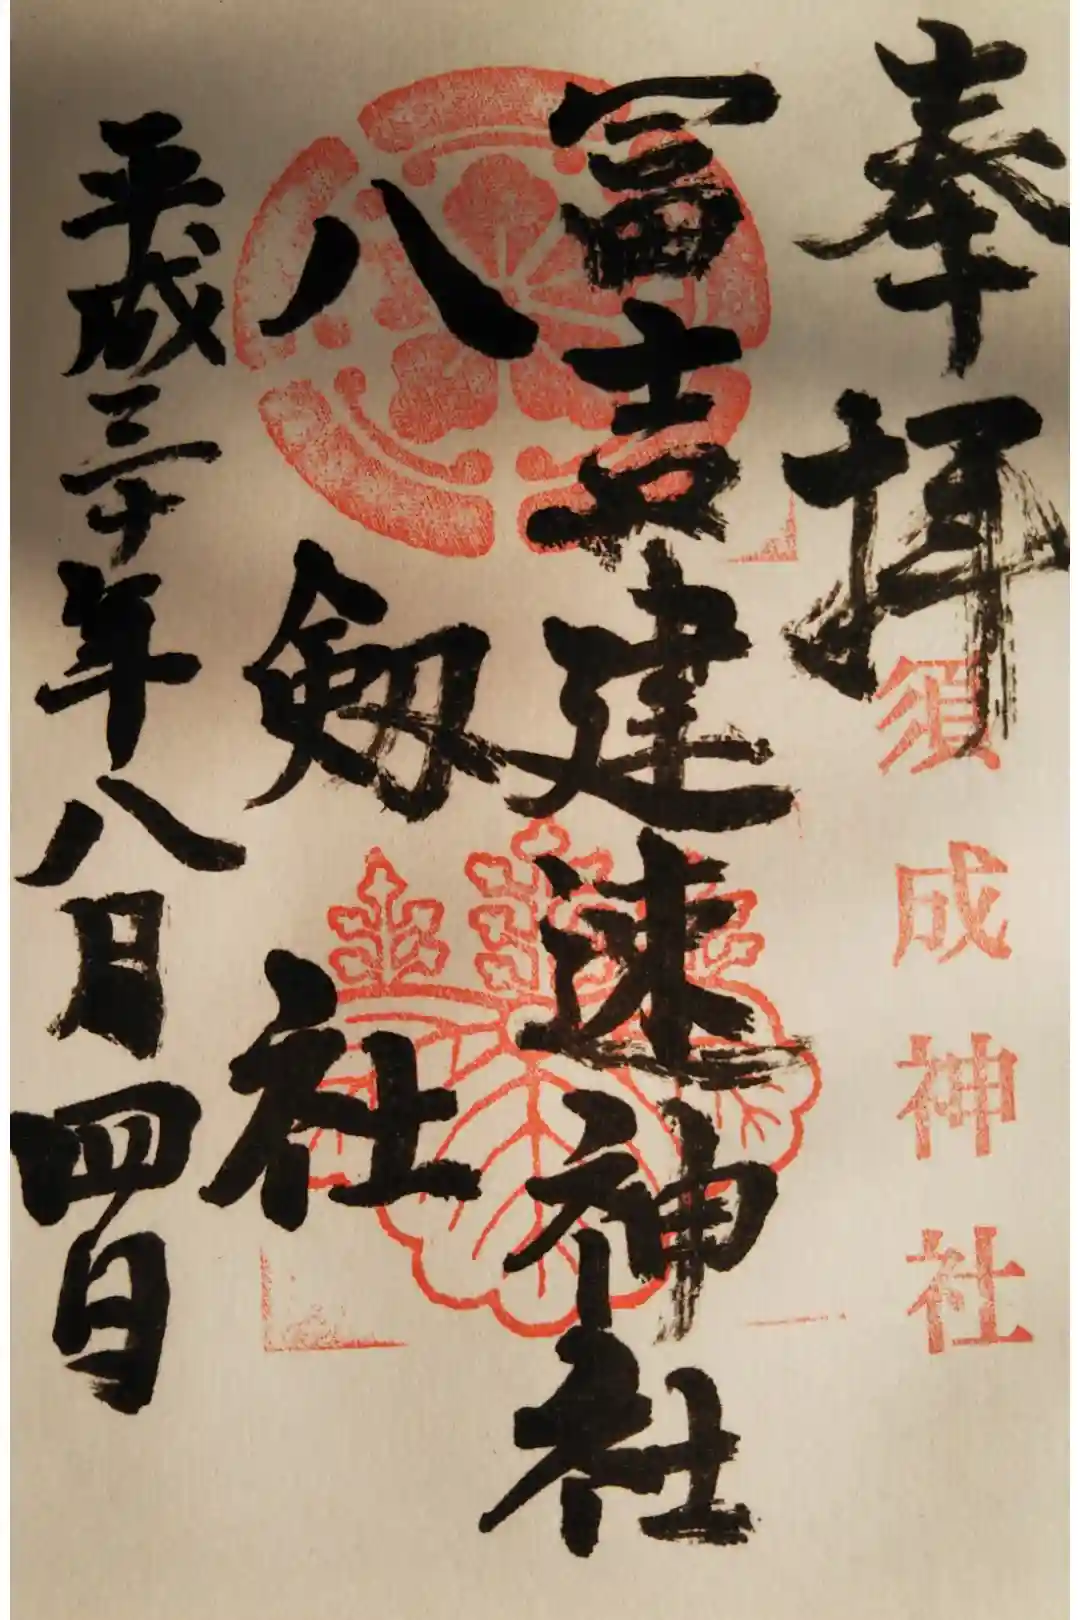 奉拝
須成神社
冨吉建速神社
八剱社
平成三十年八月四日